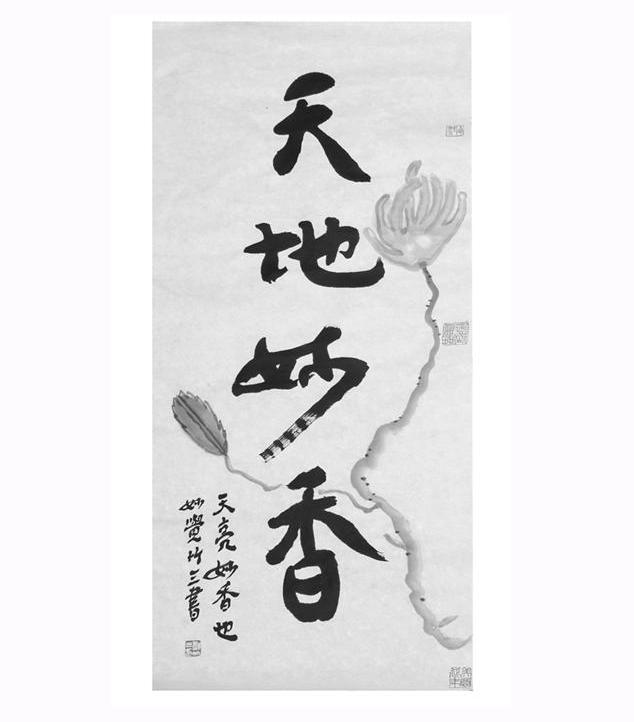 天地妙香
天亮妙香也
妙覺竹三書